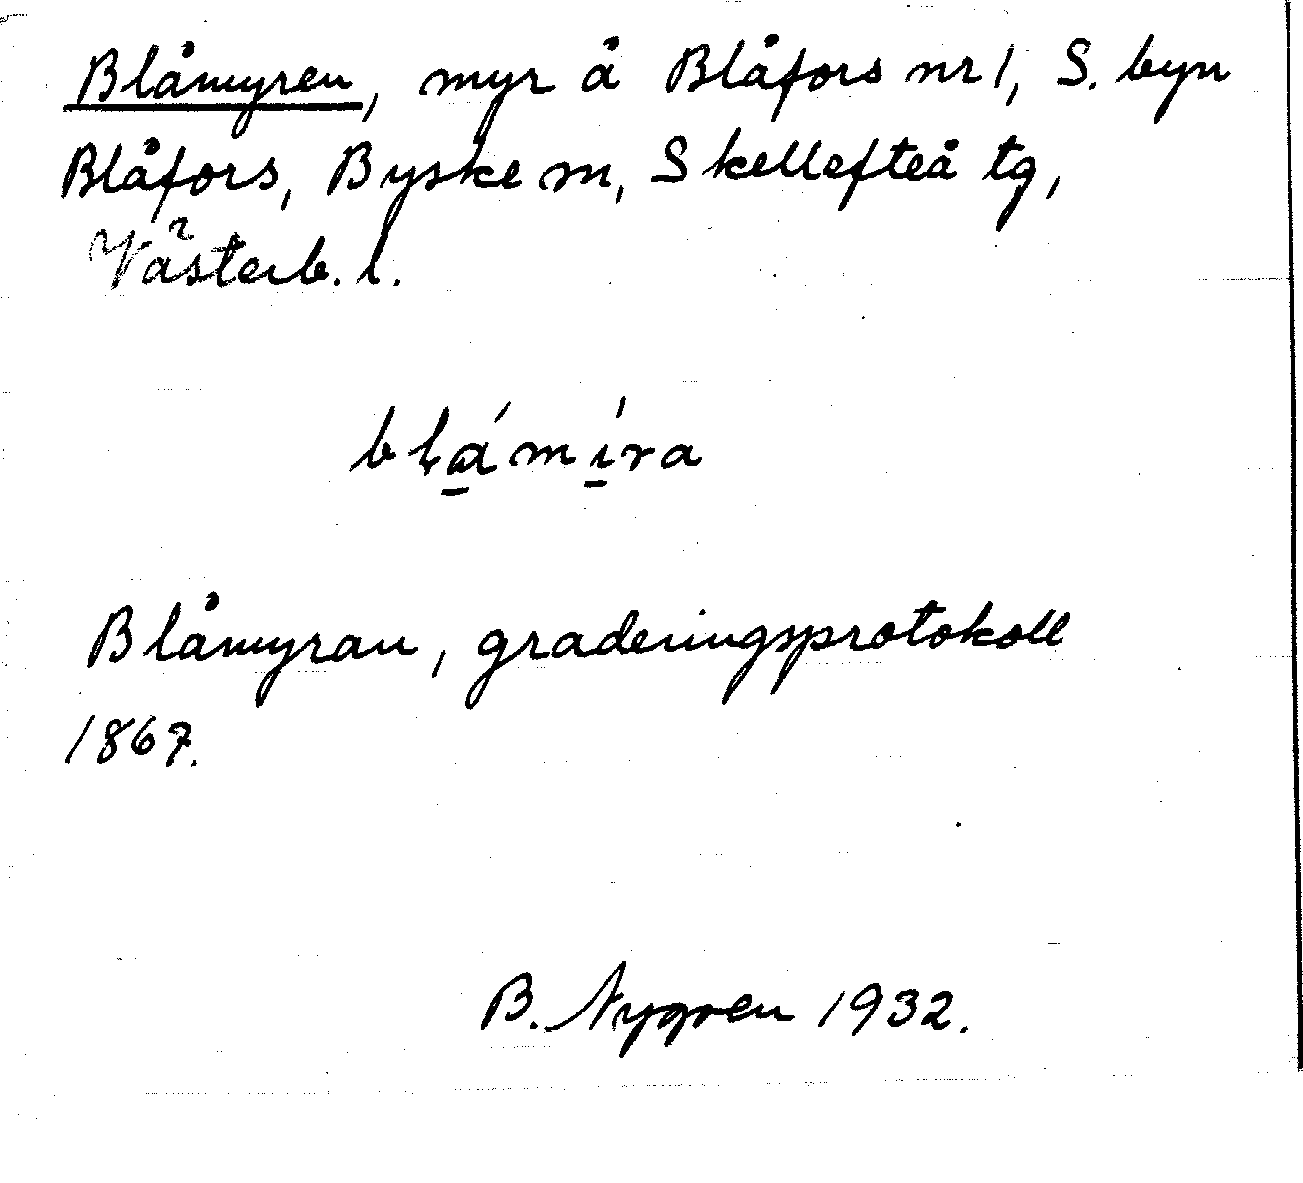 Blåmyren, myr å Blåfors nr 1, S. byn
Blåfors, Byske sn, Skellefteå tg,
Västerb. l.
bḷa̱ ́mı̱ ́ra
Blåmyran, graderingsprotokoll
1867.
B. Nygren 1932.